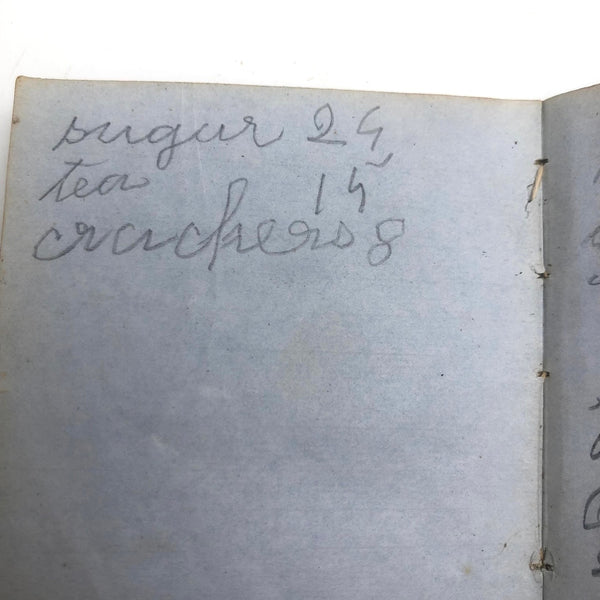 sugar 24
tea 15
crackers 8